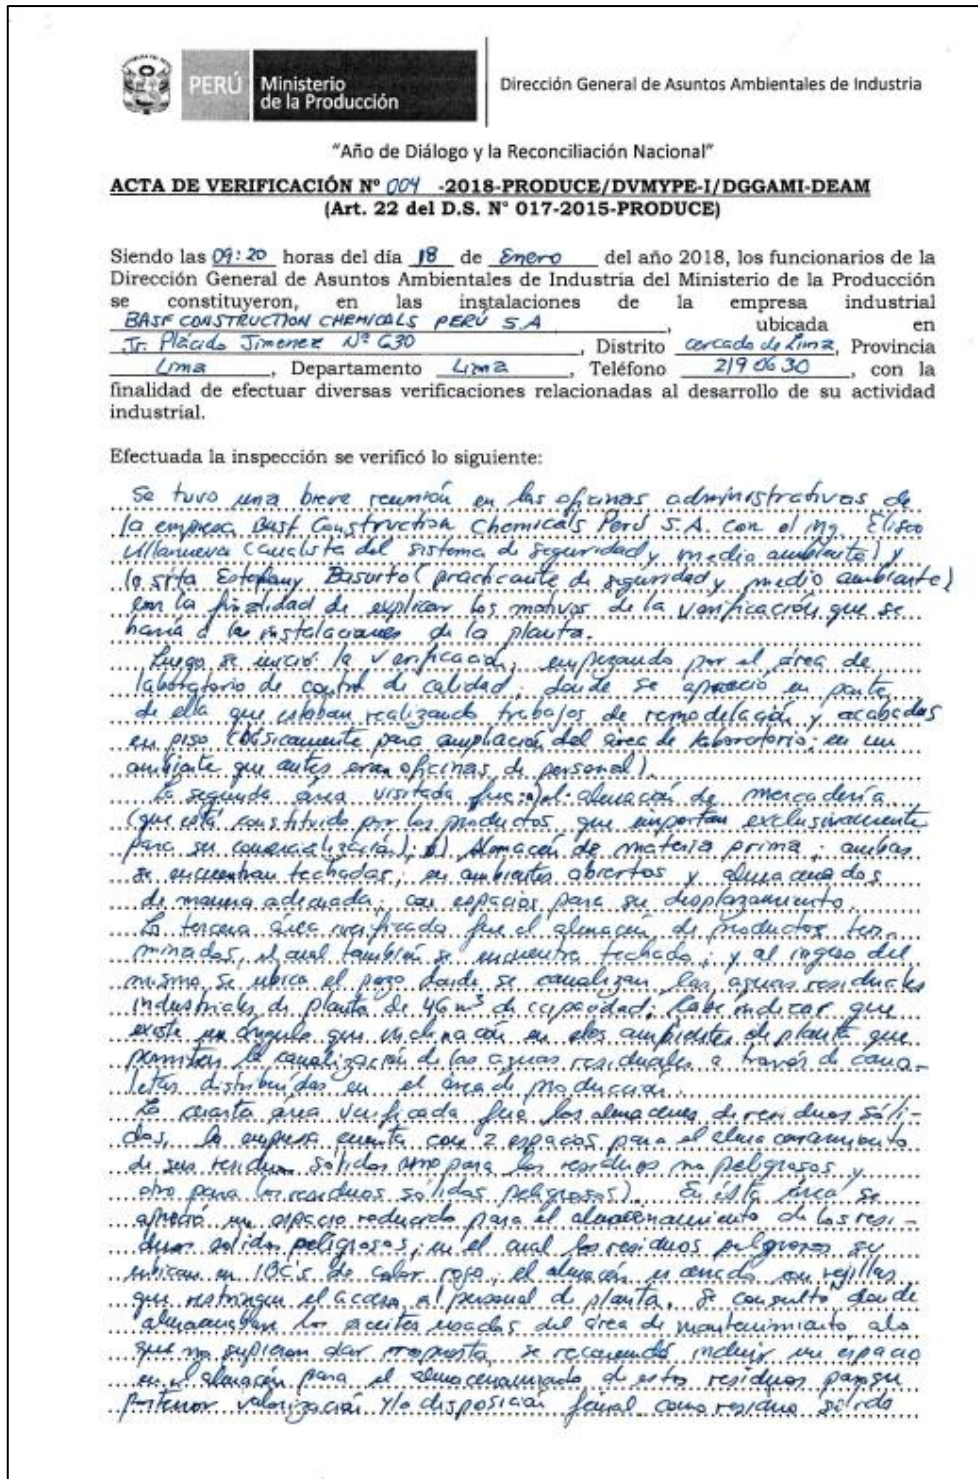 PERÚ Ministerio
de la Producción
Dirección General de Asuntos Ambientales de Industria
"Año de Diálogo y la Reconciliación Nacional"
ACTA DE VERIFICACIÓN Nº 004 -2018-PRODUCE/DVMYPE-I/DGGAMI-DEAM
(Art. 22 del D.S. Nº 017-2015-PRODUCE)
Siendo las 09:20 horas del día 18 de Enero del año 2018, los funcionarios de la
Dirección General de Asuntos Ambientales de Industria del Ministerio de la Producción
se constituyeron, en las instalaciones de la empresa industrial
BASF CONSTRUCTION CHEMICALS PERÚ S.A, ubicada en
Jr. Plácido Jimenez Nº 630, Distrito cercado de Lima, Provincia
Lima, Departamento Lima, Teléfono 2190630, con la
finalidad de efectuar diversas verificaciones relacionadas al desarrollo de su actividad
industrial.
Efectuada la inspección se verificó lo siguiente:
Se tuvo una breve reunión en las oficinas administrativas de
la empresa Basf Construction Chemicals Perú S.A. con el Ing. Eliseo
Villanueva (analista del sistema de seguridad y medio ambiente) y
la srta Estefany Basurto (practicante de seguridad y medio ambiente)
con la finalidad de explicar los motivos de la verificación que se
haría a las instalaciones de la planta.
Luego se inició la verificación, empezando por el área de
laboratorio de control de calidad, donde se apreció en parte
de ella que estaban realizando trabajos de remodelación y acabados
en piso (básicamente para ampliación del área de laboratorio; en un
ambiente que antes eran oficinas de personal).
La segunda área visitada fue: a) el almacén de mercadería
(que está constituido por los productos que importan exclusivamente
para su comercialización); b) Almacén de materia prima; ambas
se encuentran techadas, en ambientes abiertos y almacenados
de manera adecuada, con espacios para su desplazamiento.
La tercera área verificada fue el almacén de productos ter-
minados, el cual también se encuentra techado; y al ingreso del
mismo se ubica el pozo donde se canalizan las aguas residuales
industriales de planta de 46 m³ de capacidad. Cabe indicar que
existe un ángulo que inclinación en los ambientes de planta que
permiten la canalización de las aguas residuales a través de cana-
letas distribuidas en el área de producción.
La cuarta área verificada fue los almacenes de residuos sóli-
dos, la empresa cuenta con 2 espacios para el almacenamiento
de sus residuos sólidos (uno para los residuos no peligrosos y
otro para los residuos sólidos peligrosos). En ésta área se
apreció un espacio reducido para el almacenamiento de los resi-
duos solidos peligrosos, en el cual los residuos peligrosos se
ubican en IBC's de color rojo; el almacén es cercado con rejillas
que restringen el acceso al personal de planta. Se consultó donde
almacenaban los aceites usados del área de mantenimiento, a lo
que no supieron dar respuesta, se recomendó incluir un espacio
en el almacén para el almacenamiento de estos residuos para su
posterior valorización y/o disposición final como residuo sólido